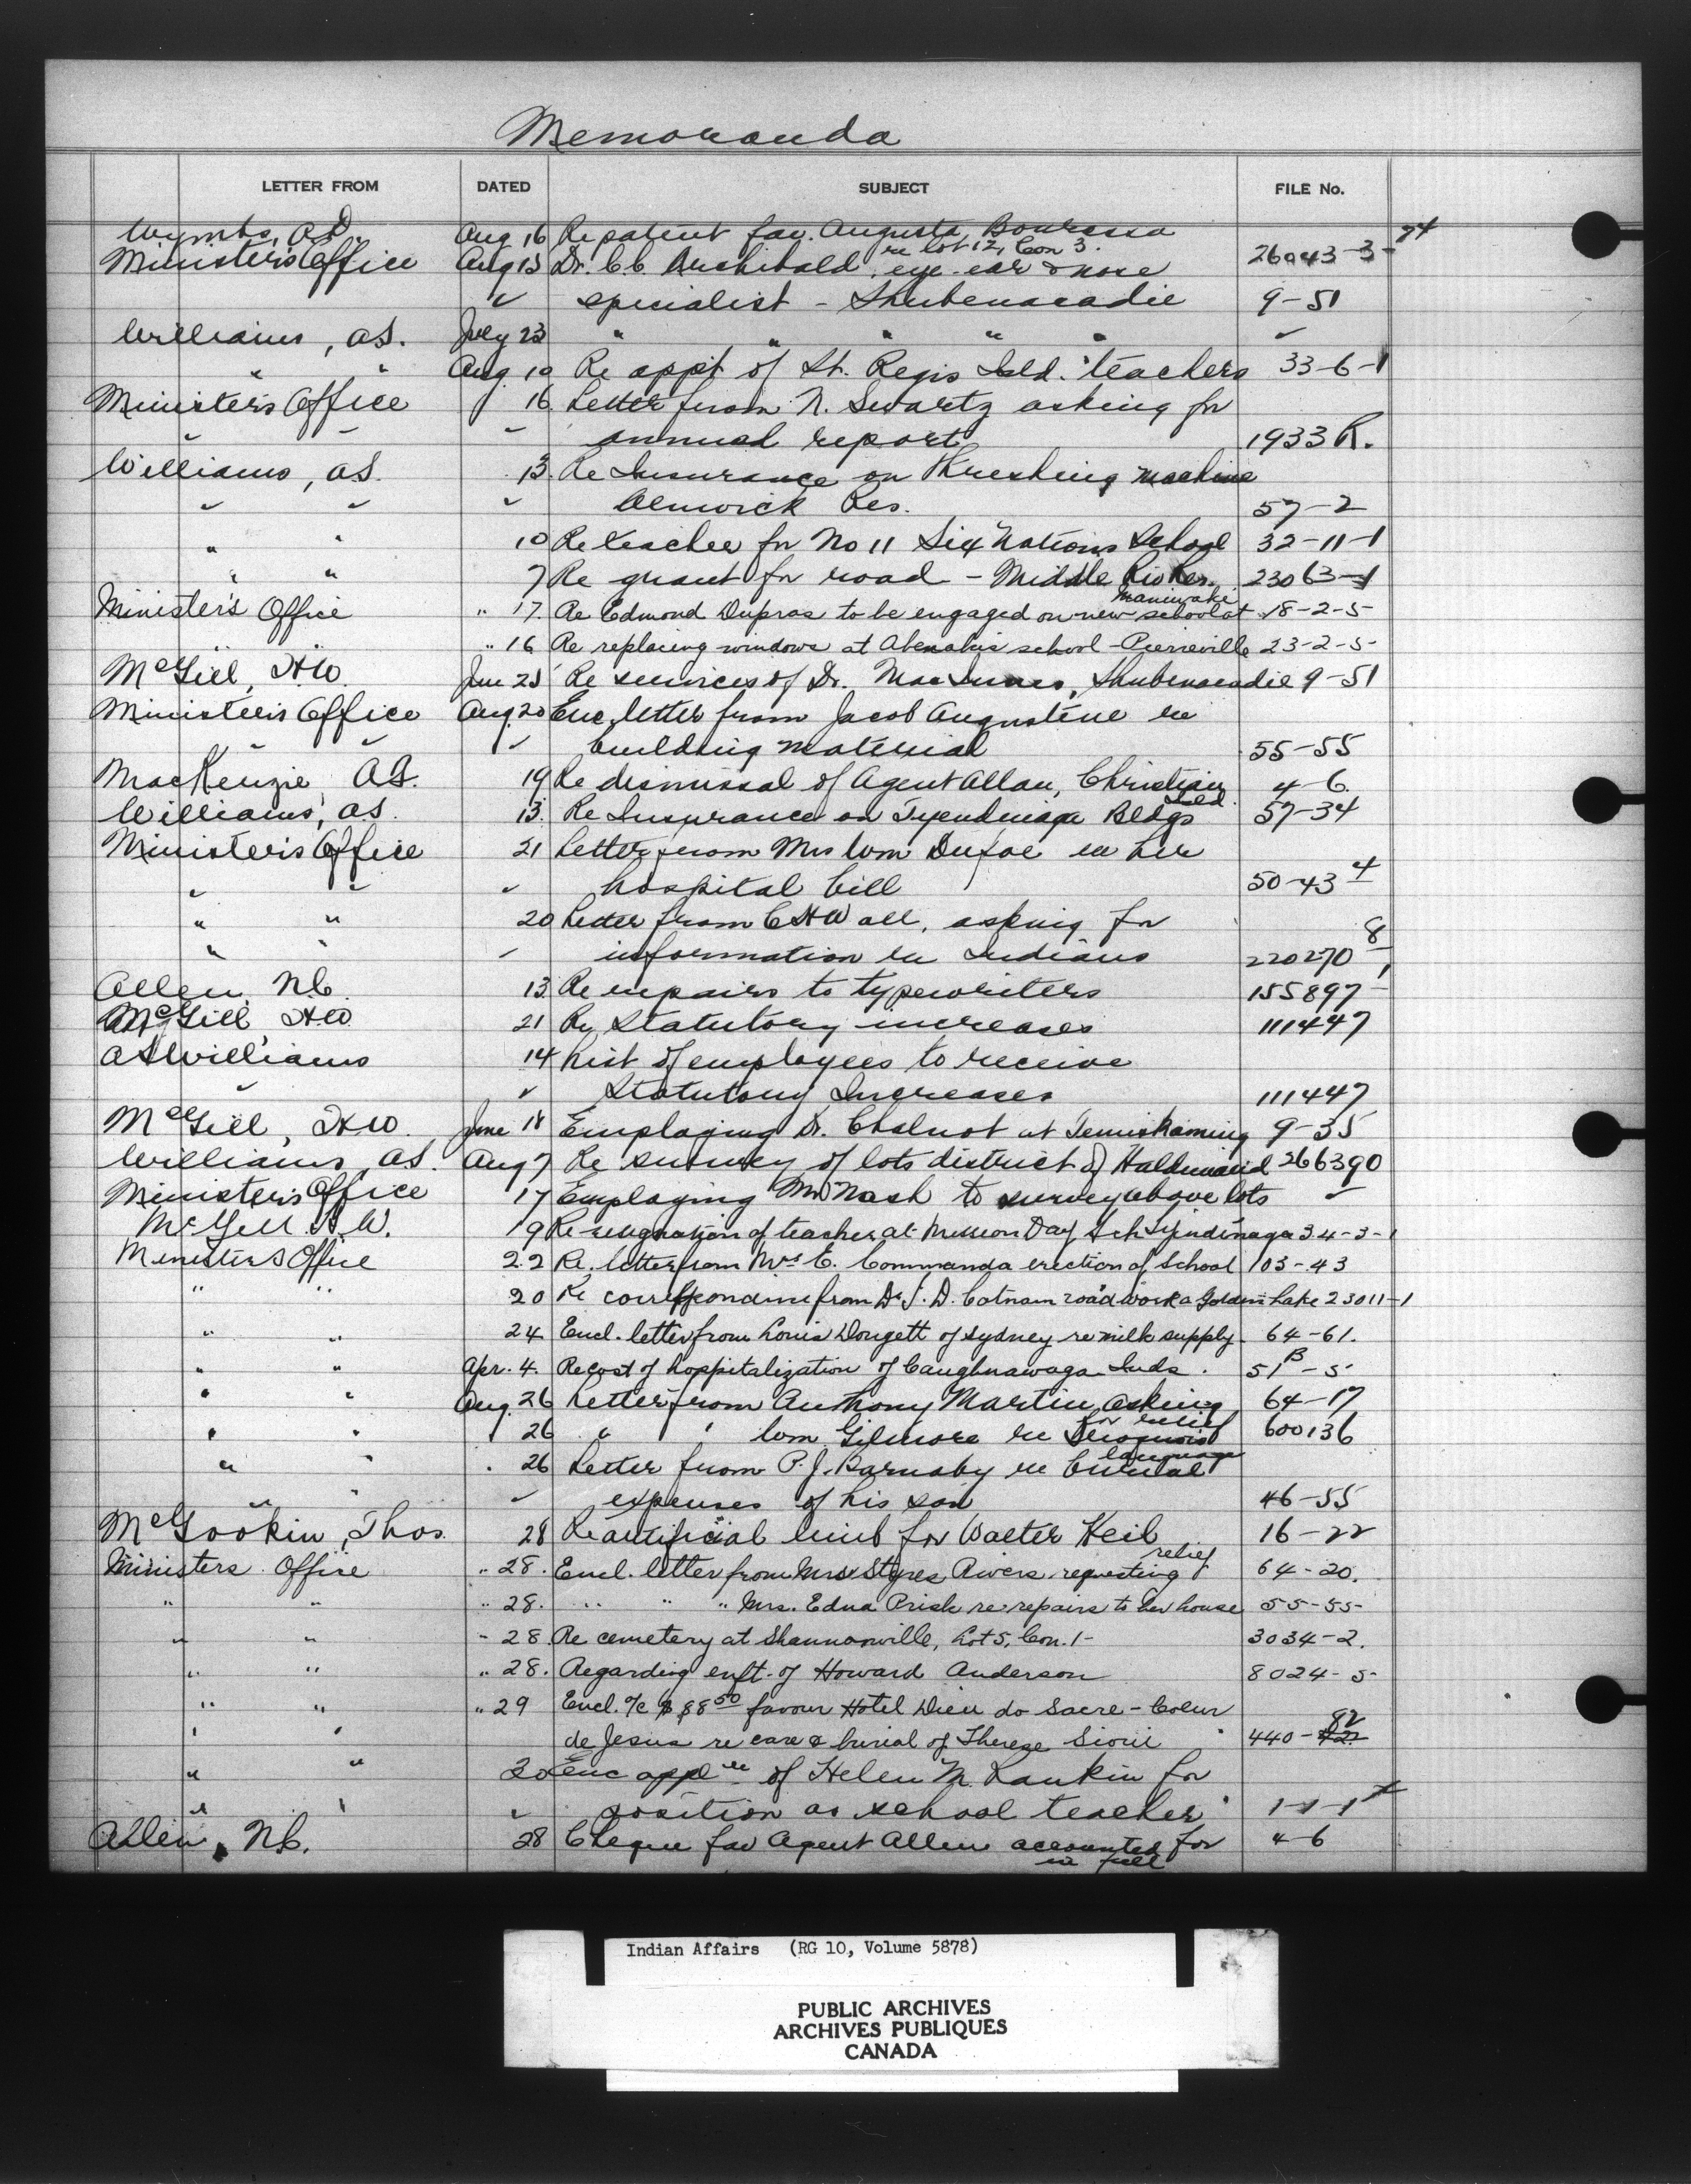 Memoranda
LETTER FROM DATED SUBJECT FILE No.
Wymbs, Aug 16 Re patent fav. Augusta Bourassa 74
re lot 12, Con 3.
Minister's Office Aug 15 Dr. C.C. Archibald, eye-ear & nose 26043-3-
" specialist - Shubenacadie 9-51
Williams, A.S. July 23 " " " " "
" " Aug. 10 Re appt of St. Regis Isld. teachers 33-6-1
Minister's Office 16 Letter from N. Swartz asking for
" " " annual report 1933 R.
Williams, A.S. 13. Re Insurance on Threshing machine
" " " Alnwick Res. 57-2
" " 10 Re teacher for No 11 Six Nations School 32-11-1
" " 7 Re grant for road - Middle Riv Res. 23063-1
Maniwaki
Minister's Office " 17. Re Edmond Dupras to be engaged on new school at 18-2-5
" 16 Re replacing windows at Abenakis school - Pierreville 23-2-5-
McGill, H.W. June 25 Re services of Dr. MacInnes, Shubenacadie 9-51
Minister's Office Aug. 20 Enc. letter from Jacob Augustine re
" " " building material 55-55
MacKenzie, A.F. 19 Re dismissal of Agent Allan, Christian 4-6.
Isld.
Williams, A.S. 13. Re Insurance on Tyendinaga Bldgs 57-34
Minister's Office 21 Letter from Mrs Wm Dufoe re her
" " " hospital bill 50-43 4
" " 20 Letter from C H Wall, asking for
" " " information re Indians 220270 8
Allen N.C. 13. Re repairs to typewriters 155897-1
McGill, H.W. 21 Re Statutory increases 111447
A S Williams 14 List of employees to receive
" " Statutory Increases 111447
McGill, H.W. June 18 Employing Dr. Chalnot at Temiskaming 9-35
Williams, A.S. Aug 7 Re survey of lots district of Haldimand 266390
Minister's Office 17 Employing Mr Nash to survey above lots "
McGill H.W. 19 Re resignation of teacher at Mission Day Sch Tyindinaga 34-3-1
Ministers Office 22 Re. letter from Mrs E. Commanda erection of School 103-43
" " 20 Re correspondence from Dr. J. D. Cotnam road work a Golden Lake 23011-1
" " 24 Encl. letter from Louis Dougett of Sydney re milk supply. 64-61.
" " Apr. 4. Re cost of hospitalization of Caughnawaga Inds. 51B-5
" " Aug. 26 Letter from Anthony Martin asking 64-17
for relief
" " 26 " " Wm Gilmore re Iroquois 600136
language
" " " 26 Letter from P.J. Barnaby re burial
" " " expenses of his son 46-55
McGookin, Thos. 28 Re artificial limb for Walter Keib 16-22
relief
Ministers Office " 28. Encl. letter from Mrs Styres Rivers requesting 64-20.
" " " 28. " " " Mrs. Edna Prisk re repairs to her house 55-55-
" " " 28 Re cemetery at Shannonville, Lot 5, Con. 1- 3034-2.
" " " 28. Regarding enft. of Howard Anderson 8024-5-
" " " 29 Encl. a/c $88 50 favour Hotel Dieu do Sacre-Coeur
" " de Jesus re care & burial of Therese Sioui 440-82
" " 30 Enc applon of Helen M. Rankin for
" " " position as school teacher 1-1-1
Allen, N.C. 28 Cheque fav Agent Allen accounted for 4-6
in full
Indian Affairs (RG 10, Volume 5878)
PUBLIC ARCHIVES
ARCHIVES PUBLIQUES
CANADA